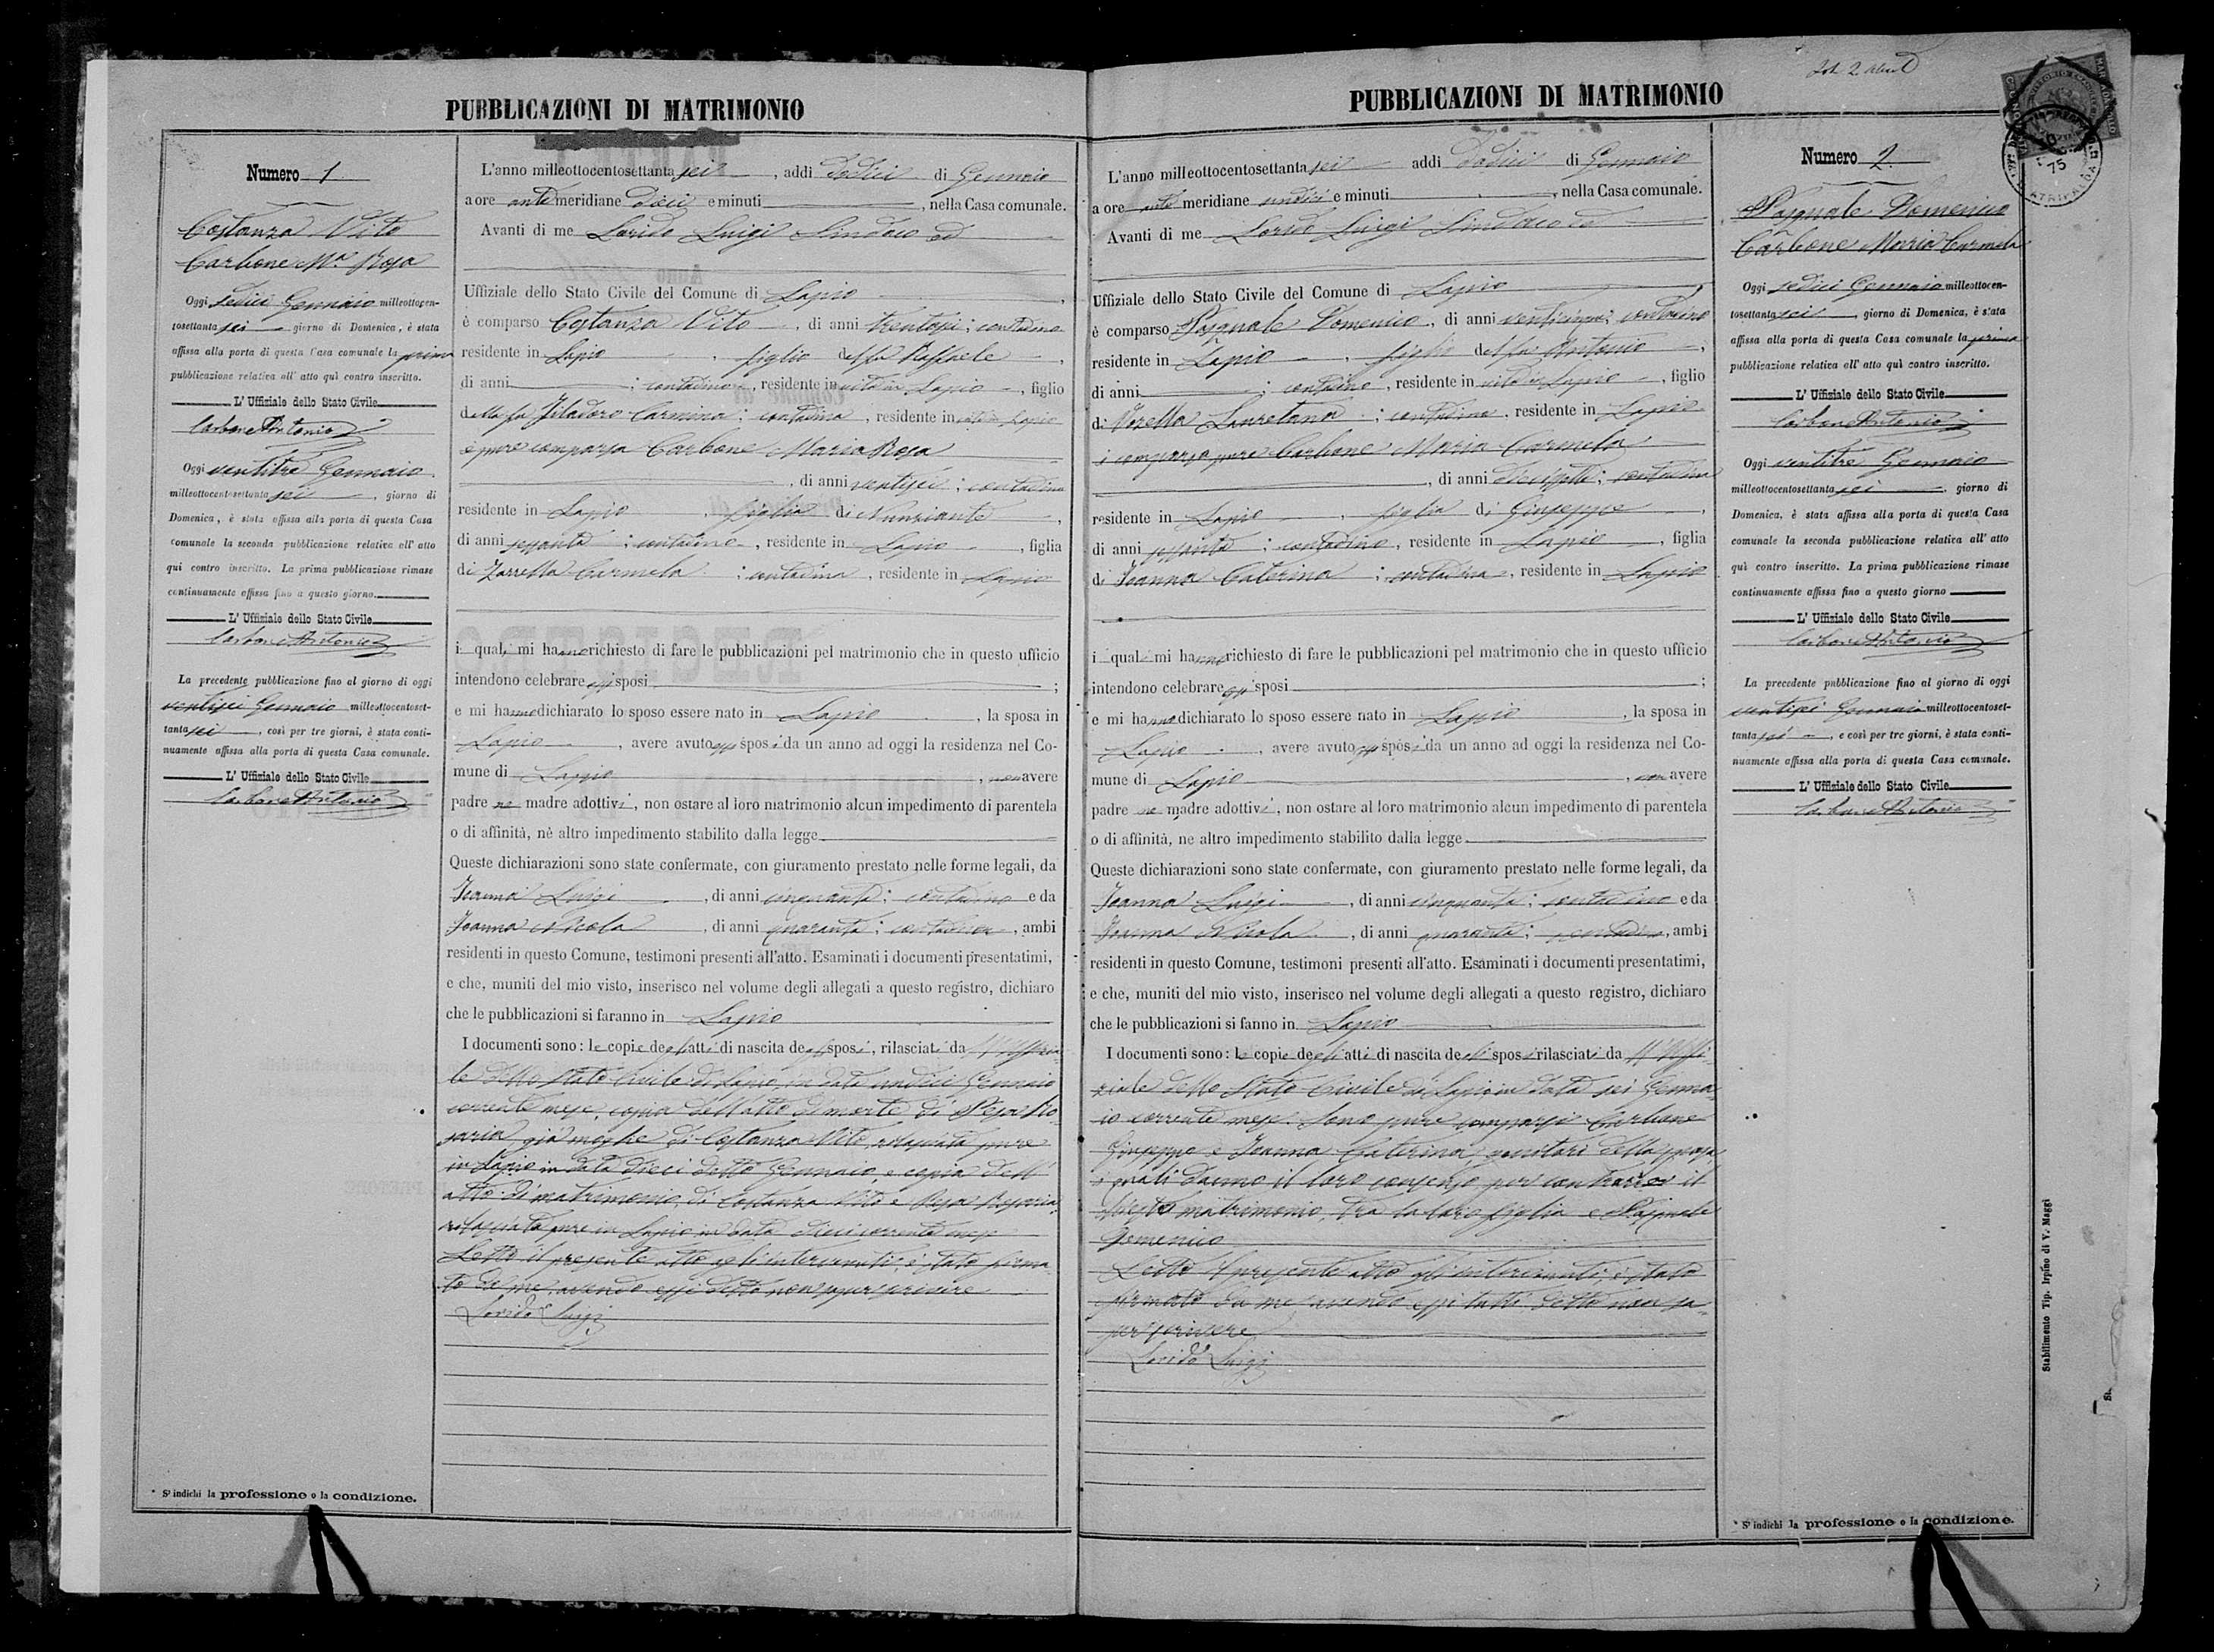 PUBBLICAZIONI DI MATRIMONIO
Numero 1
Costanza Vito
Carbone Mª Rosa
Oggi sedici Gennaio milleottocen-
tosettanta sei giorno di Domenica, è stata
affissa alla porta di questa Casa comunale la prima
pubblicazione relativa all' atto quì contro inscritto.
L' Uffiziale dello Stato Civile
Carbone Antonio
Oggi ventitre Gennaio
milleottocentosettanta sei, giorno di
Domenica, è stata affissa alla porta di questa Casa
comunale la seconda pubblicazione relativa all' atto
qui contro inscritto. La prima pubblicazione rimase
continuamente affissa fino a questo giorno.
L' Uffiziale dello Stato Civile
Carbone Antonio
La precedente pubblicazione fino al giorno di oggi
ventisei Gennaio milleottocentoset-
tanta sei, così per tre giorni, è stata conti-
nuamente affissa alla porta di questa Casa comunale.
L' Uffiziale dello Stato Civile
Carbone Antonio
* Si indichi la professione o la condizione.
L'anno milleottocentosettanta sei, addi dodici di Gennaio
a ore anti meridiane dieci e minuti, nella Casa comunale.
Avanti di me Lorido Luigi Sindaco ed
Uffiziale dello Stato Civile del Comune di Lapio,
è comparso Costanza Vito, di anni trentasei; contadino
residente in Lapio, figlio del fu Raffaele,
di anni; contadino, residente in vita in Lapio, figlio
della fu Carmina; contadina, residente in vita in Lapio
è pure comparsa Carbone Maria Rosa
, di anni ventisei; contadina
residente in Lapio, figlia di Nunziante,
di anni sessanta; contadino, residente in Lapio, figlia
di Zarrella Carmela; contadina, residente in Lapio
i quali mi hanno richiesto di fare le pubblicazioni pel matrimonio che in questo ufficio
intendono celebrare essi sposi;
e mi hanno dichiarato lo sposo essere nato in Lapio, la sposa in
Lapio, avere avuto essi sposi da un anno ad oggi la residenza nel Co-
mune di Lapio, non avere
padre ne madre adottivi, non ostare al loro matrimonio alcun impedimento di parentela
o di affinità, nè altro impedimento stabilito dalla legge
Queste dichiarazioni sono state confermate, con giuramento prestato nelle forme legali, da
Joanna Luigi, di anni cinquanta; contadino e da
Joanna Nicola, di anni quaranta; contadino, ambi
residenti in questo Comune, testimoni presenti all'atto. Esaminati i documenti presentatimi,
e che, muniti del mio visto, inserisco nel volume degli allegati a questo registro, dichiaro
che le pubblicazioni si faranno in Lapio
I documenti sono: le copie degli atti di nascita degli sposi, rilasciati da
le dello Stato Civile di Lapio, in data undici Gennaio
corrente mese, copia dell'atto di morte di Pesa Ro-
saria già moglie di Costanza Vito, rilasciata pure
in Lapio in data dieci detto Gennaio, e copia dell'
atto di matrimonio, di Costanza Vito e Pesa Rosaria,
rilasciata pure in Lapio in data dieci corrente mese
Letto il presente atto agli intervenuti, è stato firma-
to da me, avendo essi detto non saper scrivere
Lorido Luigi
PUBBLICAZIONI DI MATRIMONIO
L'anno milleottocentosettanta sei addi dodici di Gennaio
a ore anti meridiane undici e minuti, nella Casa comunale.
Avanti di me Lorido Luigi Sindaco ed
Uffiziale dello Stato Civile del Comune di Lapio,
è comparso Pasquale Domenico, di anni venticinque; contadino
residente in Lapio, figlio del fu Antonio,
di anni; contadino, residente in vita in Lapio, figlio
di Loretana; contadina, residente in Lapio
è comparsa pure Carbone Maria Carmela
, di anni diciassette; contadina
residente in Lapio, figlia di Giuseppe,
di anni sessanta; contadino, residente in Lapio, figlia
di Joanna Caterina; contadina, residente in Lapio
i quali mi hanno richiesto di fare le pubblicazioni pel matrimonio che in questo ufficio
intendono celebrare essi sposi;
e mi hanno dichiarato lo sposo essere nato in Lapio, la sposa in
Lapio, avere avuto essi sposi da un anno ad oggi la residenza nel Co-
mune di Lapio, non avere
padre ne madre adottivi, non ostare al loro matrimonio alcun impedimento di parentela
o di affinità, ne altro impedimento stabilito dalla legge
Queste dichiarazioni sono state confermate, con giuramento prestato nelle forme legali, da
Joanna Luigi, di anni cinquanta; contadino e da
Joanna Nicola, di anni quaranta; contadino, ambi
residenti in questo Comune, testimoni presenti all'atto. Esaminati i documenti presentatimi,
e che, muniti del mio visto, inserisco nel volume degli allegati a questo registro, dichiaro
che le pubblicazioni si fanno in Lapio
I documenti sono: le copie degli atti di nascita degli sposi rilasciati da ll'Uffi-
ziale dello Stato Civile di Lapio in data sei Genna-
io corrente mese. Sono pure comparsi Carbone
Giuseppe e Joanna Caterina, genitori della sposa,
i quali danno il loro consenso per contrarre il
matrimonio, tra la loro figlia e Pasquale
Domenico
Letto il presente atto agli intervenuti, è stato
firmato da me avendo essi tutti detto non sa-
per scrivere
Lorido Luigi
Numero 2
Pasquale Domenico
Carbone Maria Carmela
Oggi sedici Gennaio milleottocen-
tosettanta sei, giorno di Domenica, è stata
affissa alla porta di questa Casa comunale la prima
pubblicazione relativa all' atto quì contro inscritto.
L' Uffiziale dello Stato Civile
Carbone Antonio
Oggi ventitre Gennaio
milleottocentosettanta sei, giorno di
Domenica, è stata affissa alla porta di questa Casa
comunale la seconda pubblicazione relativa all' atto
quì contro inscritto. La prima pubblicazione rimase
continuamente affissa fino a questo giorno
L' Uffiziale dello Stato Civile
Carbone Antonio
La precedente pubblicazione fino al giorno di oggi
ventisei Gennaio milleottocentoset-
tanta sei, e così per tre giorni, è stata conti-
nuamente affissa alla porta di questa Casa comunale.
L' Uffiziale dello Stato Civile
Carbone Antonio
* Si indichi la professione o la condizione.
Stabilimento Tip. Irpino di V. Maggi
75
ATRIPALDA